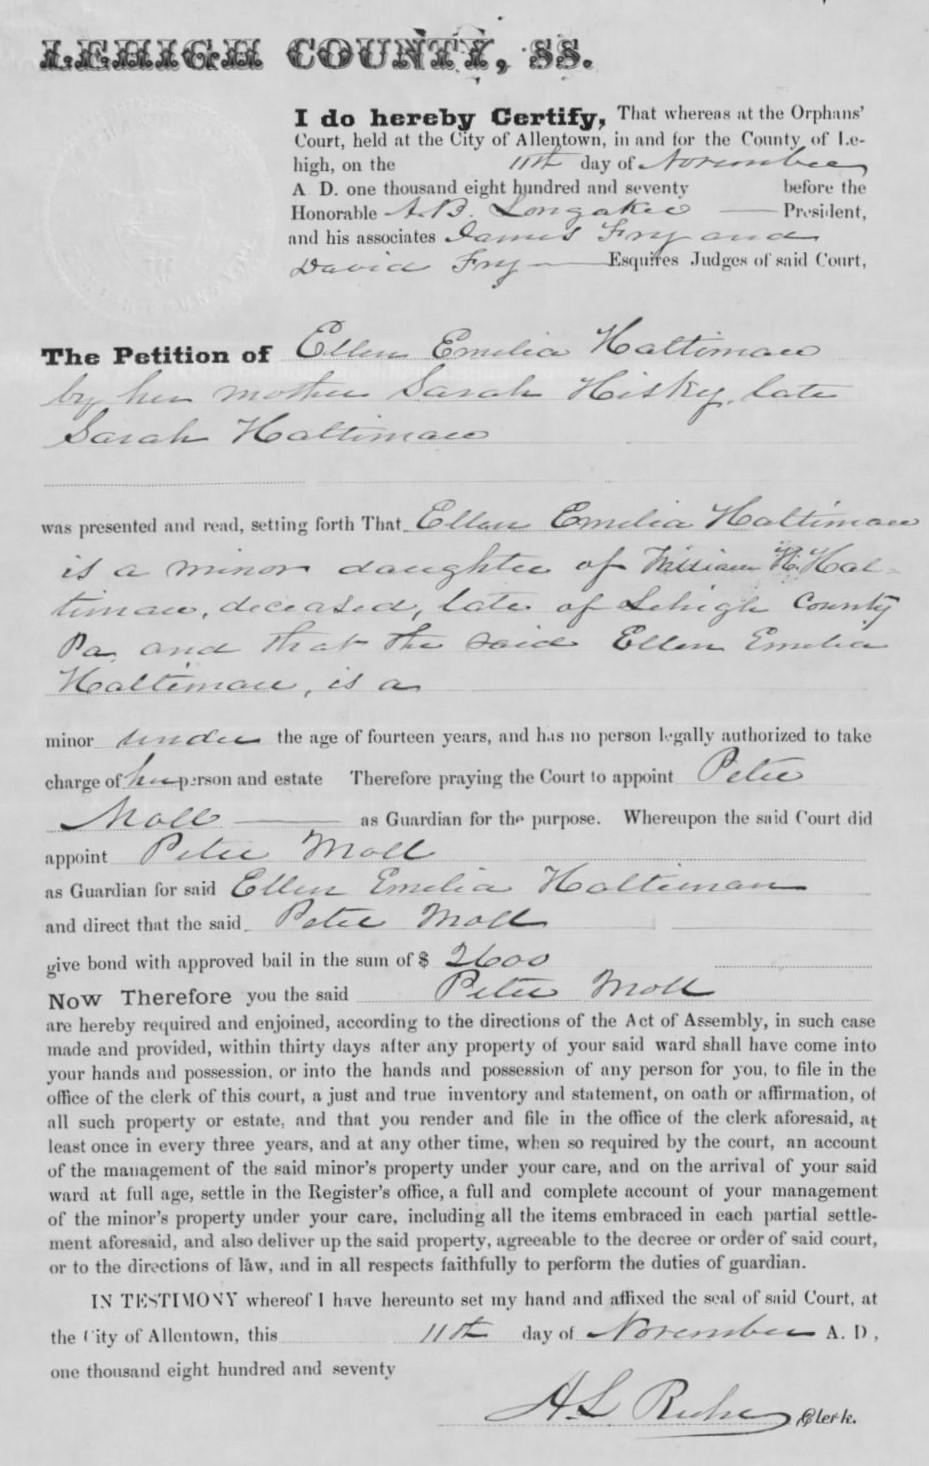 LEHIGH COUNTY, SS.
I do hereby Certify, That whereas at the Orphans'
Court, held at the City of Allentown, in and for the County of Le-
high, on the 11th day of November
A D. one thousand eight hundred and seventy before the
Honorable A.B. Longaker President,
and his associates James Fry and
David Fry Esquires Judges of said Court,
The Petition of Ellen Emelia Haltiman
by her mother Sarah Hisky, late
Sarah Haltiman
was presented and read, setting forth That Ellen Emelia Haltiman
is a minor daughter of William H. Hal-
timan, deceased, late of Lehigh County
Pa. and that the said Ellen Emelia
Haltiman, is a
minor under the age of fourteen years, and has no person legally authorized to take
charge of her person and estate Therefore praying the Court to appoint Peter
Moll as Guardian for the purpose. Whereupon the said Court did
appoint Peter Moll
as Guardian for said Ellen Emelia Haltiman
and direct that the said Peter Moll
give bond with approved bail in the sum of $ 2600
Now Therefore you the said Peter Moll
are hereby required and enjoined, according to the directions of the Act of Assembly, in such case
made and provided, within thirty days after any property of your said ward shall have come into
your hands and possession, or into the hands and possession of any person for you, to file in the
office of the clerk of this court, a just and true inventory and statement, on oath or affirmation, of
all such property or estate, and that you render and file in the office of the clerk aforesaid, at
least once in every three years, and at any other time, when so required by the court, an account
of the management of the said minor's property under your care, and on the arrival of your said
ward at full age, settle in the Register's office, a full and complete account of your management
of the minor's property under your care, including all the items embraced in each partial settle-
ment aforesaid, and also deliver up the said property, agreeable to the decree or order of said court,
or to the directions of law, and in all respects faithfully to perform the duties of guardian.
IN TESTIMONY whereof I have hereunto set my hand and affixed the seal of said Court, at
the City of Allentown, this 11th day of November A. D,
one thousand eight hundred and seventy
A. L. Ruhe Clerk.